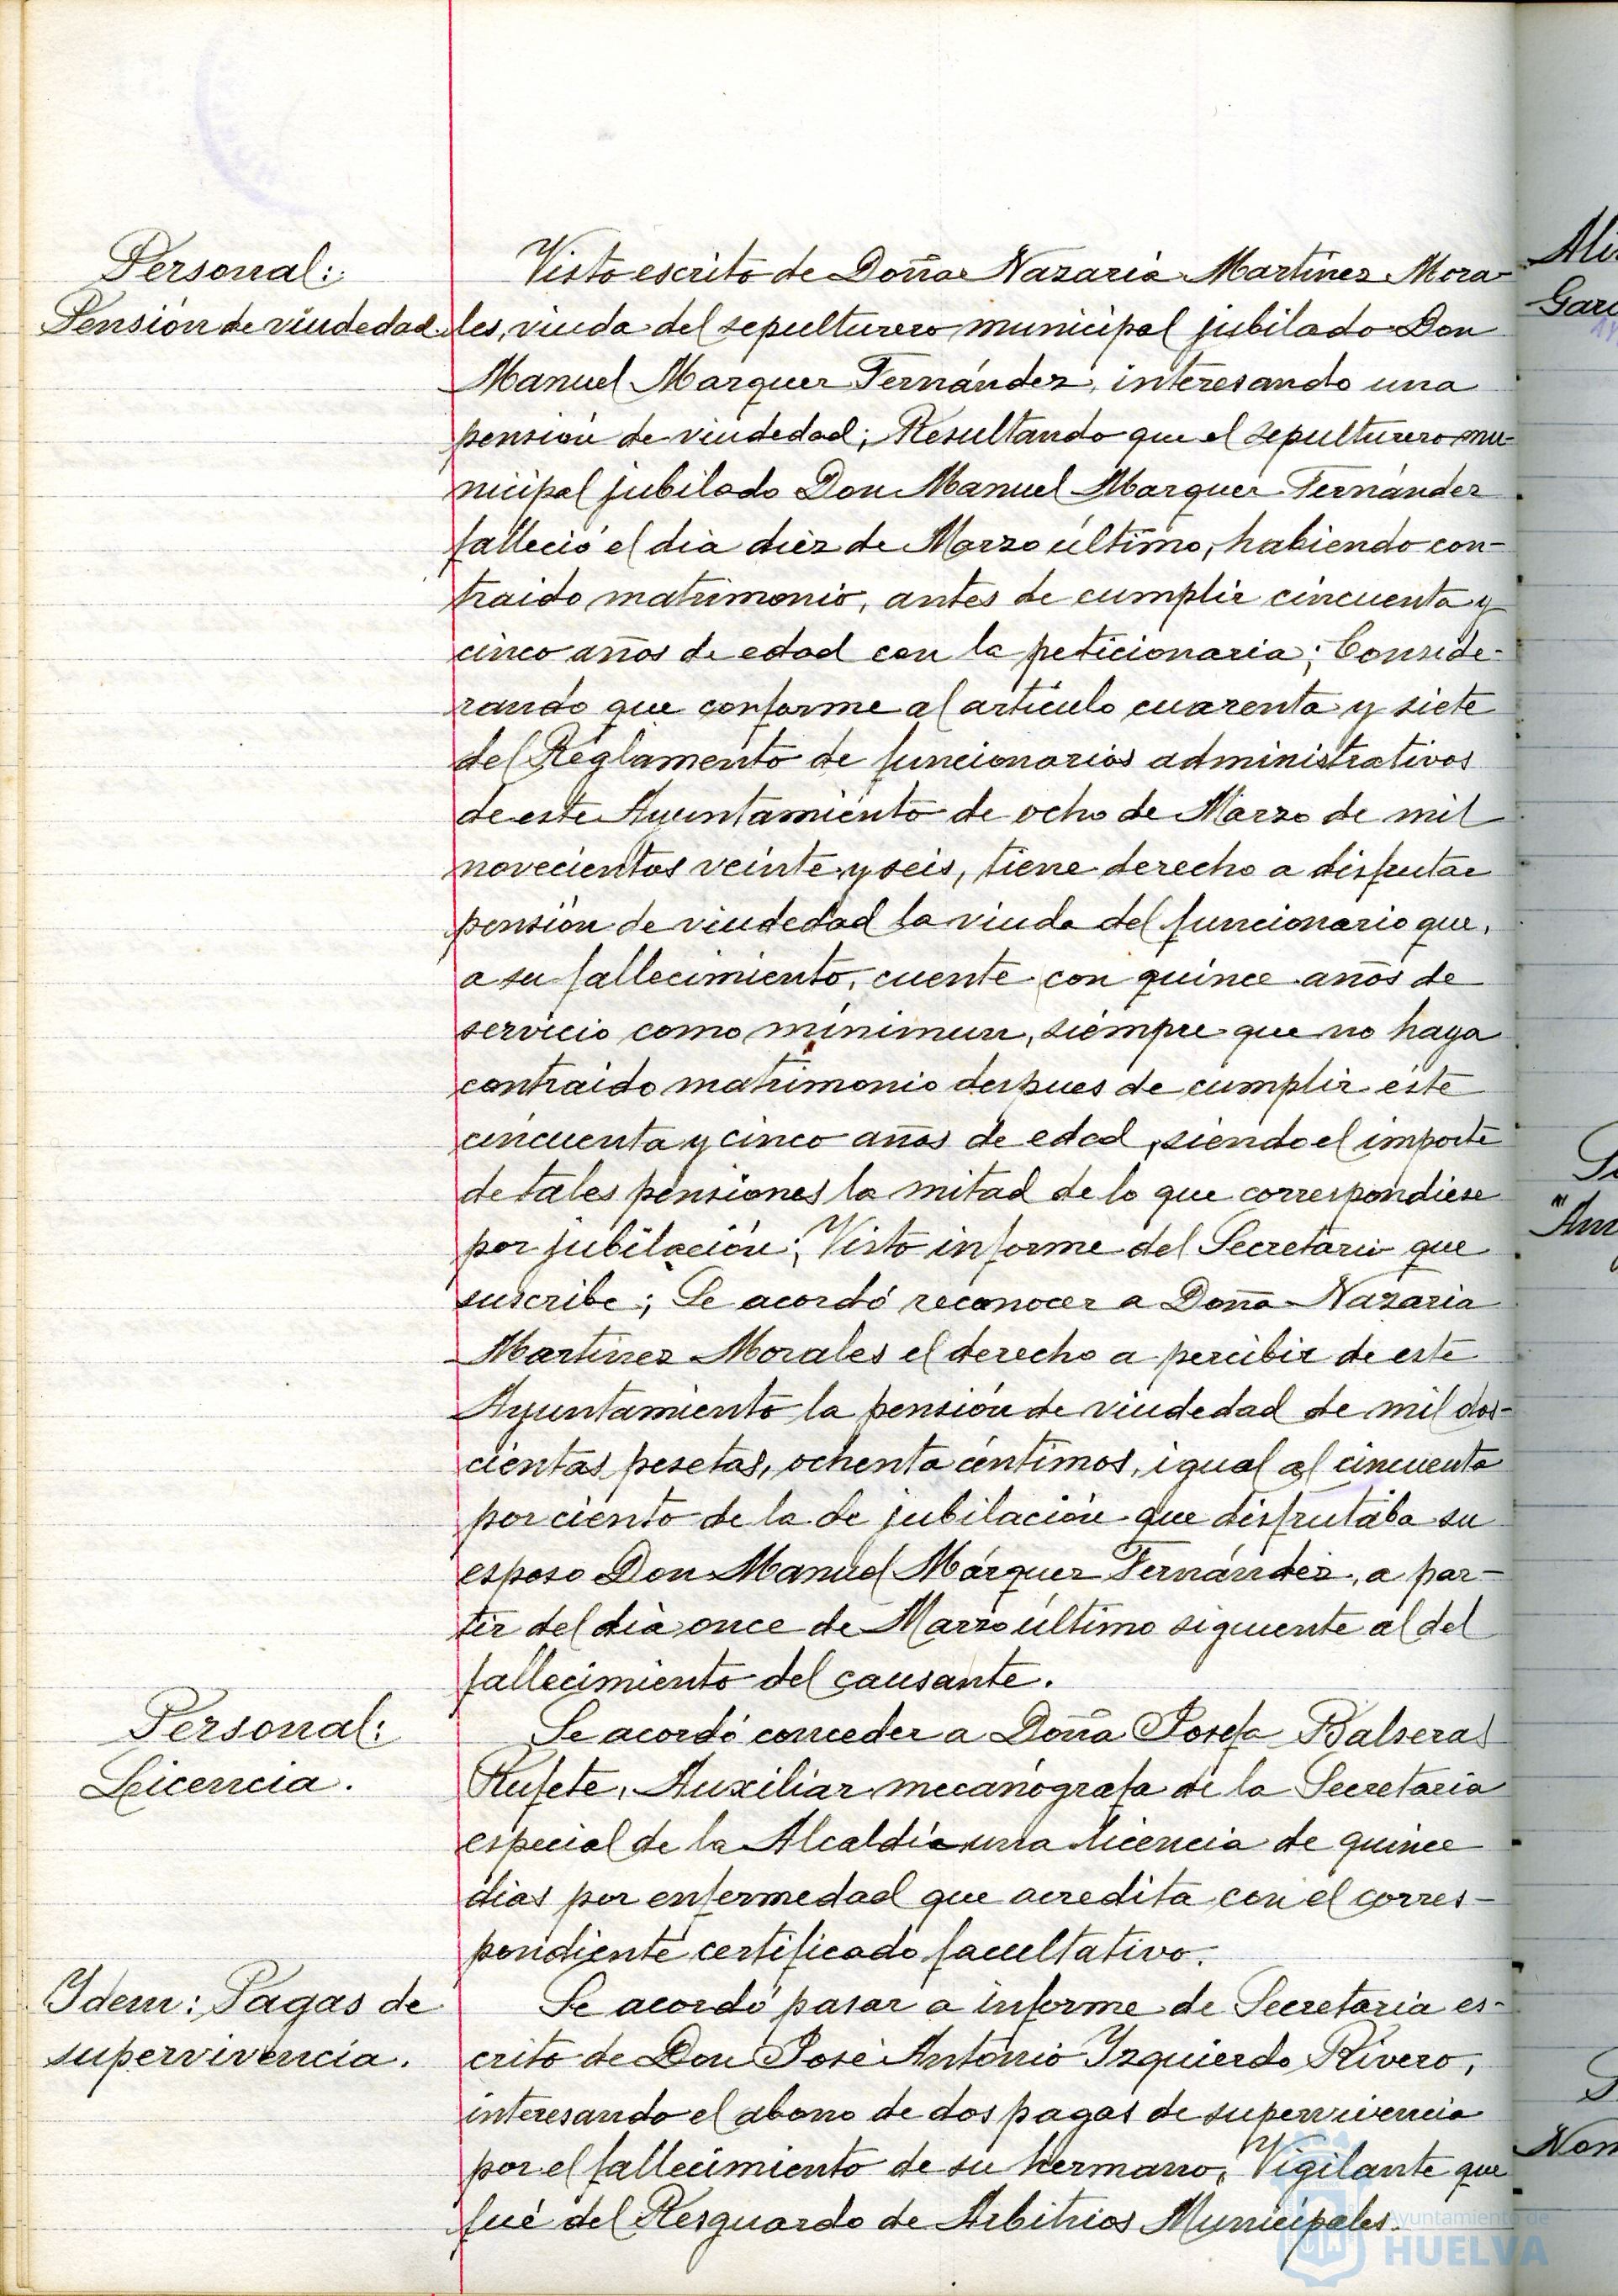 Personal:
Pensión de viudedad.
Visto escrito de Doña Nazaria Martínez Mora-
les, viuda del sepulturero municipal jubilado Don
Manuel Marquez Fernández, interesando una
pensión de viudedad; Resultando que el sepulturero mu-
nicipal jubilado Don Manuel Marquez Fernández
falleció el dia diez de Marzo último, habiendo con-
traido matrimonio, antes de cumplir cincuenta y
cinco años de edad con la peticionaria; Conside-
rando que conforme al artículo cuarenta y siete
del Reglamento de funcionarios administrativos
de este Ayuntamiento de ocho de Marzo de mil
novecientos veinte y seis, tiene derecho a disfrutar
pensión de viudedad la viuda del funcionario que,
a su fallecimiento, cuente con quince años de
servicio como mínimun, siempre que no haya
contraido matrimonio despues de cumplir éste
cincuenta y cinco años de edad, siendo el importe
de tales pensiones la mitad de lo que correspondiese
por jubilación; Visto informe del Secretario que
suscribe; Se acordó reconocer a Doña Nazaria
Martínez Morales el derecho a percibir de este
Ayuntamiento la pensión de viudedad de mil dos-
cientas pesetas, ochenta céntimos, igual al cincuenta
por ciento de la de jubilación que disfrutaba su
esposo Don Manuel Márquez Fernández, a par-
tir del dia once de Marzo último siguiente al del
fallecimiento del causante.
Personal:
Licencia.
Se acordó conceder a Doña Josefa Balsera
Rufete, Auxiliar mecanógrafa de la Secretaria
especial de la Alcaldía una licencia de quince
dias por enfermedad que acredita con el corres-
pondiente certificado facultativo.
Idem: Pagas de
supervivencia.
Se acordó pasar a informe de Secretaria es-
crito de Don José Antonio Izquierdo Rivero,
interesando el abono de dos pagas de supervivencia
por el fallecimiento de su hermano, Vigilante que
fué del Resguardo de Arbitrios Municipales.
Ayuntamiento de
HUELVA